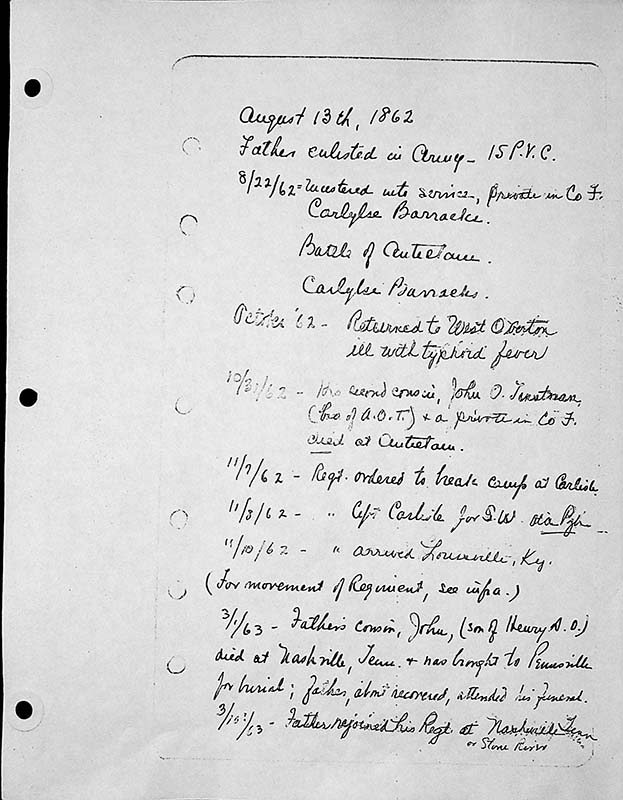 August 13th, 1862
Father enlisted in Army - 15 P.V.C.
8/22/62 = Mustered into service, private in Co F.
Carlylse Barracks.
Battle of Antietam.
Carlylse Barracks.
October '62 - Returned to West Overton
ill with typhoid fever
10/31/62 - His second cousin, John O. Tinstman,
(bro of A.O.T.) & a private in Co F.
died at Antietam.
11/7/62 - Regt. ordered to break camp at Carlisle
11/8/62 - " Left Carlisle for S.W. via Pgh
11/10/62 - " arrived Louisville, Ky.
(For movement of Regiment, see infra.)
3/1/63 - Father's cousin, John, (son of Henry D. O.)
died at Nashville, Tenn. & was brought to Pennsville
for burial; father, about recovered, attended his funeral.
3/15?/63 - Father rejoined his Regt. at Nashville Tenn
or Stone River